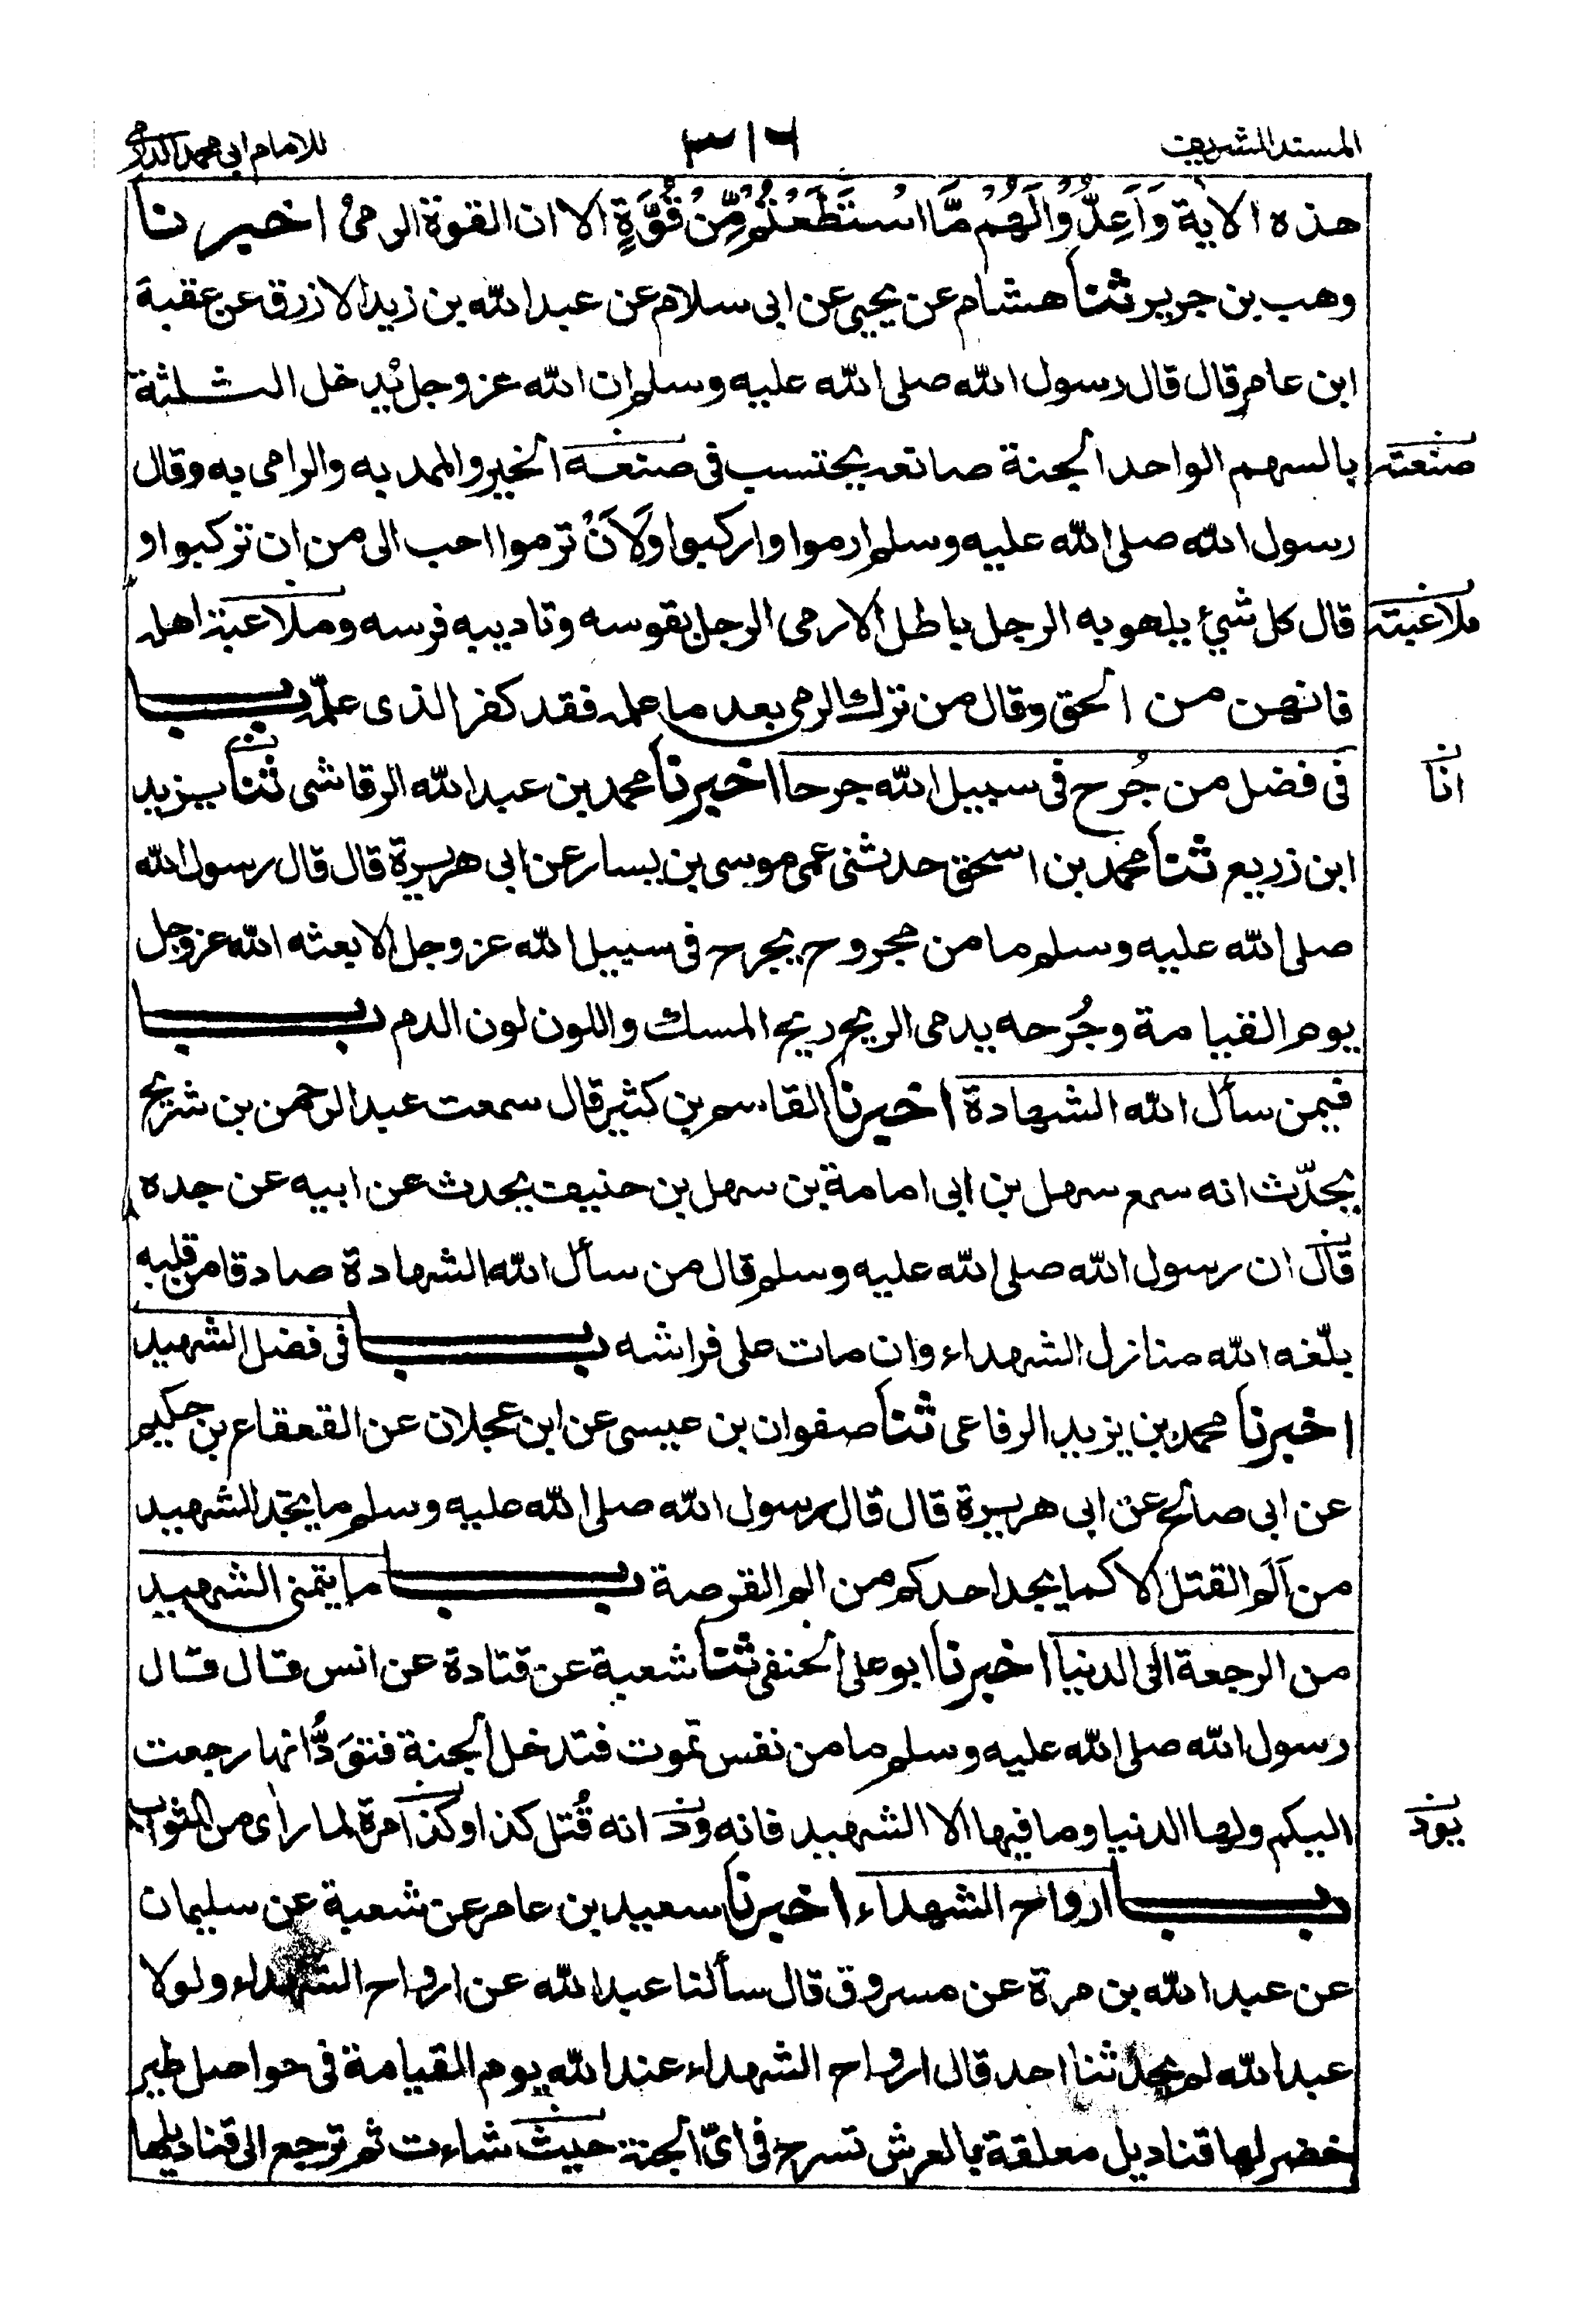 المسند الشريف ٣١٦ للامام ابى محمد الدارمى
هذه الاية وَاَعِدُّوْا لَهُمْ مَّا اسْتَطَعْتُمْ مِّنْ قُوَّةٍ الا ان القوة الرمى اخبرنا
وهب بن جرير ثنا هشام عن يحيى عن ابى سلام عن عبد الله بن زيد الازرق عن عقبة
ابن عامر قال قال رسول الله صلى الله عليه وسلم ان الله عز وجل يُدخل الثلثة
بالسهم الواحد الجنة صانعه يحتسب فى صنعه الخير والممد به والرامى به وقال
صنعته
رسول الله صلى الله عليه وسلم ارموا واركبوا وَلَاَنْ ترموا احب الى من ان تركبوا و
قال كل شئ يلهو به الرجل باطل الا رمى الرجل بقوسه وتاديبه فرسه وملاعبة اهله
ملاعبته
فانهن من الحق وقال من ترك الرمى بعد ما علمه فقد كفر الذى علّمه باب
فى فضل من جُرح فى سبيل الله جرحا اخبرنا محمد بن عبد الله الرقاشى ثنا يزيد
انا
ابن زريع ثنا محمد بن اسحق حدثنى عمى موسى بن يسار عن ابى هريرة قال قال رسول الله
صلى الله عليه وسلم ما من مجروح يجرح فى سبيل الله عز وجل الا بعثه الله عز وجل
يوم القيامة وجُرحه يدمى الريح ريح المسك واللون لون الدم باب
فيمن سأل الله الشهادة اخبرنا القاسم بن كثير قال سمعت عبد الرحمن بن شريح
يحدّث انه سمع سهل بن ابى امامة بن سهل بن حنيف يحدث عن ابيه عن جده
قال ان رسول الله صلى الله عليه وسلم قال من سأل الله الشهادة صادقا من قلبه
بلّغه الله منازل الشهداء وان مات على فراشه باب فى فضل الشهيد
اخبرنا محمد بن يزيد الرفاعى ثنا صفوان بن عيسى عن ابن عجلان عن القعقاع بن حكيم
عن ابى صالح عن ابى هريرة قال قال رسول الله صلى الله عليه وسلم ما يجد الشهيد
من اَلَم القتل الا كما يجد احدكم من الم القرصة باب ما يتمنى الشهيد
من الرجعة الى الدنيا اخبرنا ابو على الحنفى ثنا شعبة عن قتادة عن انس قال قال
رسول الله صلى الله عليه وسلم ما من نفس تموت فتدخل الجنة فتوَدُّ انها رجعت
اليكم ولها الدنيا وما فيها الا الشهيد فانه ودّ انه قُتل كذا وكذا مرة لما راى من الثواب
يودّ
باب ارواح الشهداء اخبرنا سعيد بن عامر عن شعبة عن سليمان
عن عبد الله بن مرة عن مسروق قال سألنا عبد الله عن ارواح الشهداء ولولا
عبد الله لم يحدثنا احد قال ارواح الشهداء عند الله يوم القيامة فى حواصل طير
خضر لها قناديل معلقة بالعرش تسرح فى اىّ الجنة حيث شاءت ثم ترجع الى قناديلها